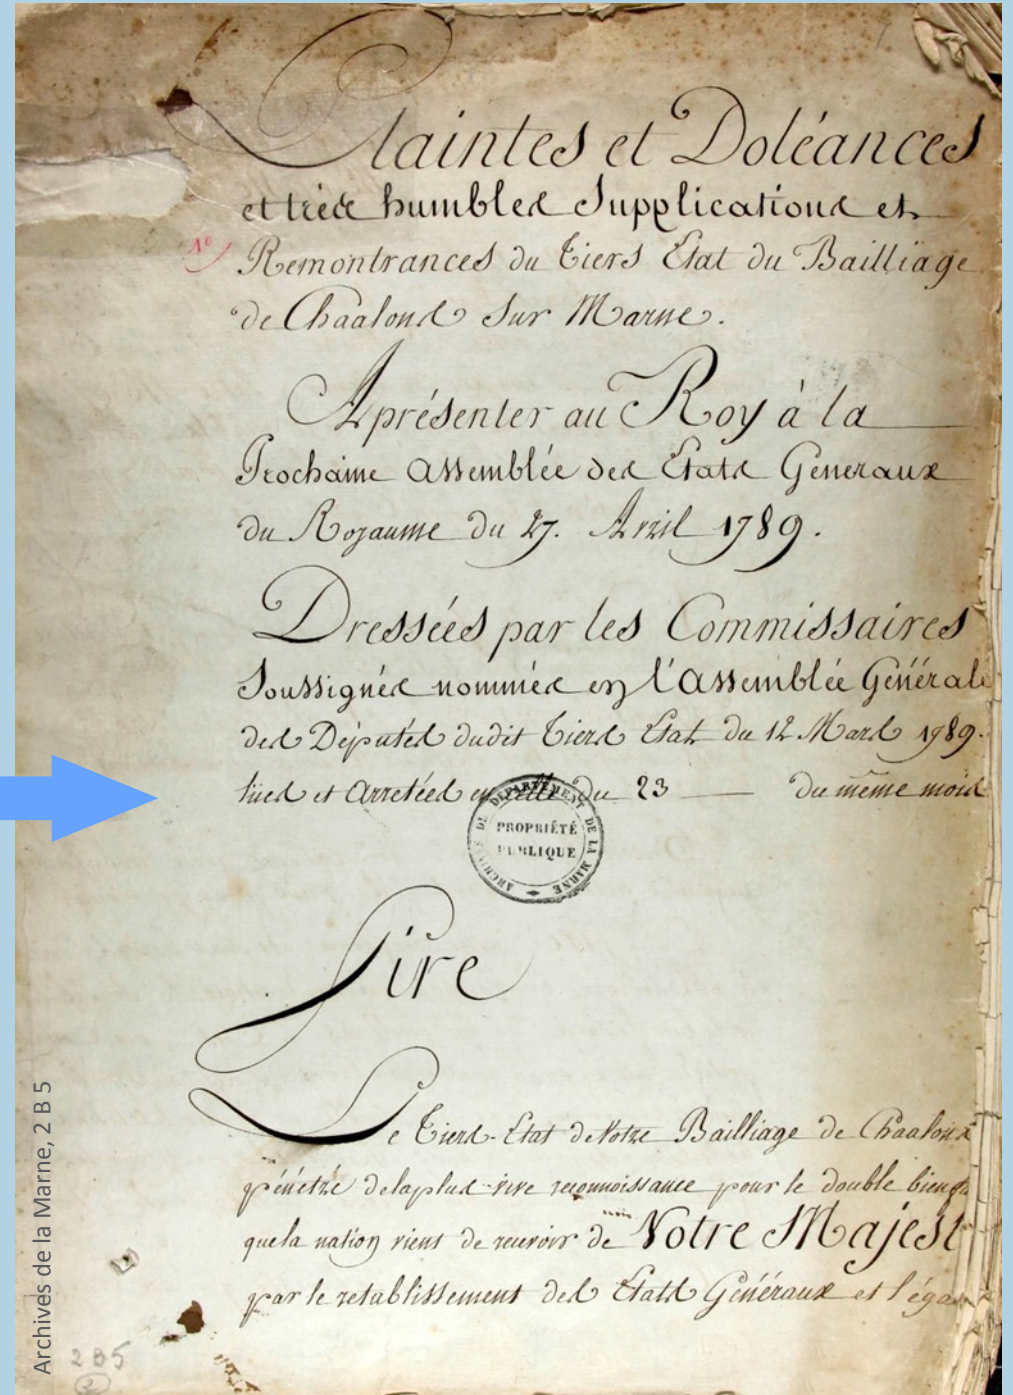 Plaintes et Doléances
et très humbles Supplications et
1º
Remontrances du Tiers Etat du Bailliage
de Chaalons Sur Marne.
A présenter au Roy à la
Prochaine Assemblée des Etats Généraux
du Royaume du 27. Avril 1789.
Dressées par les Commissaires
Soussignés nommés en l'Assemblée Générale
des Députés dudit Tiers Etat du 12 Mars 1789.
lües et Arretées en celle du 23 du même mois
ARCHIVES DU DÉPARTEMENT DE LA MARNE
PROPRIÉTÉ
PUBLIQUE
Sire
Le Tiers-Etat de Votre Bailliage de Chaalons
pénétré de la plus vive reconnoissance pour le double
que la nation vient de recevoir de Votre Majesté
par le retablissement des Etats Généraux et
Archives de la Marne, 2 B 5
2 B 5
2